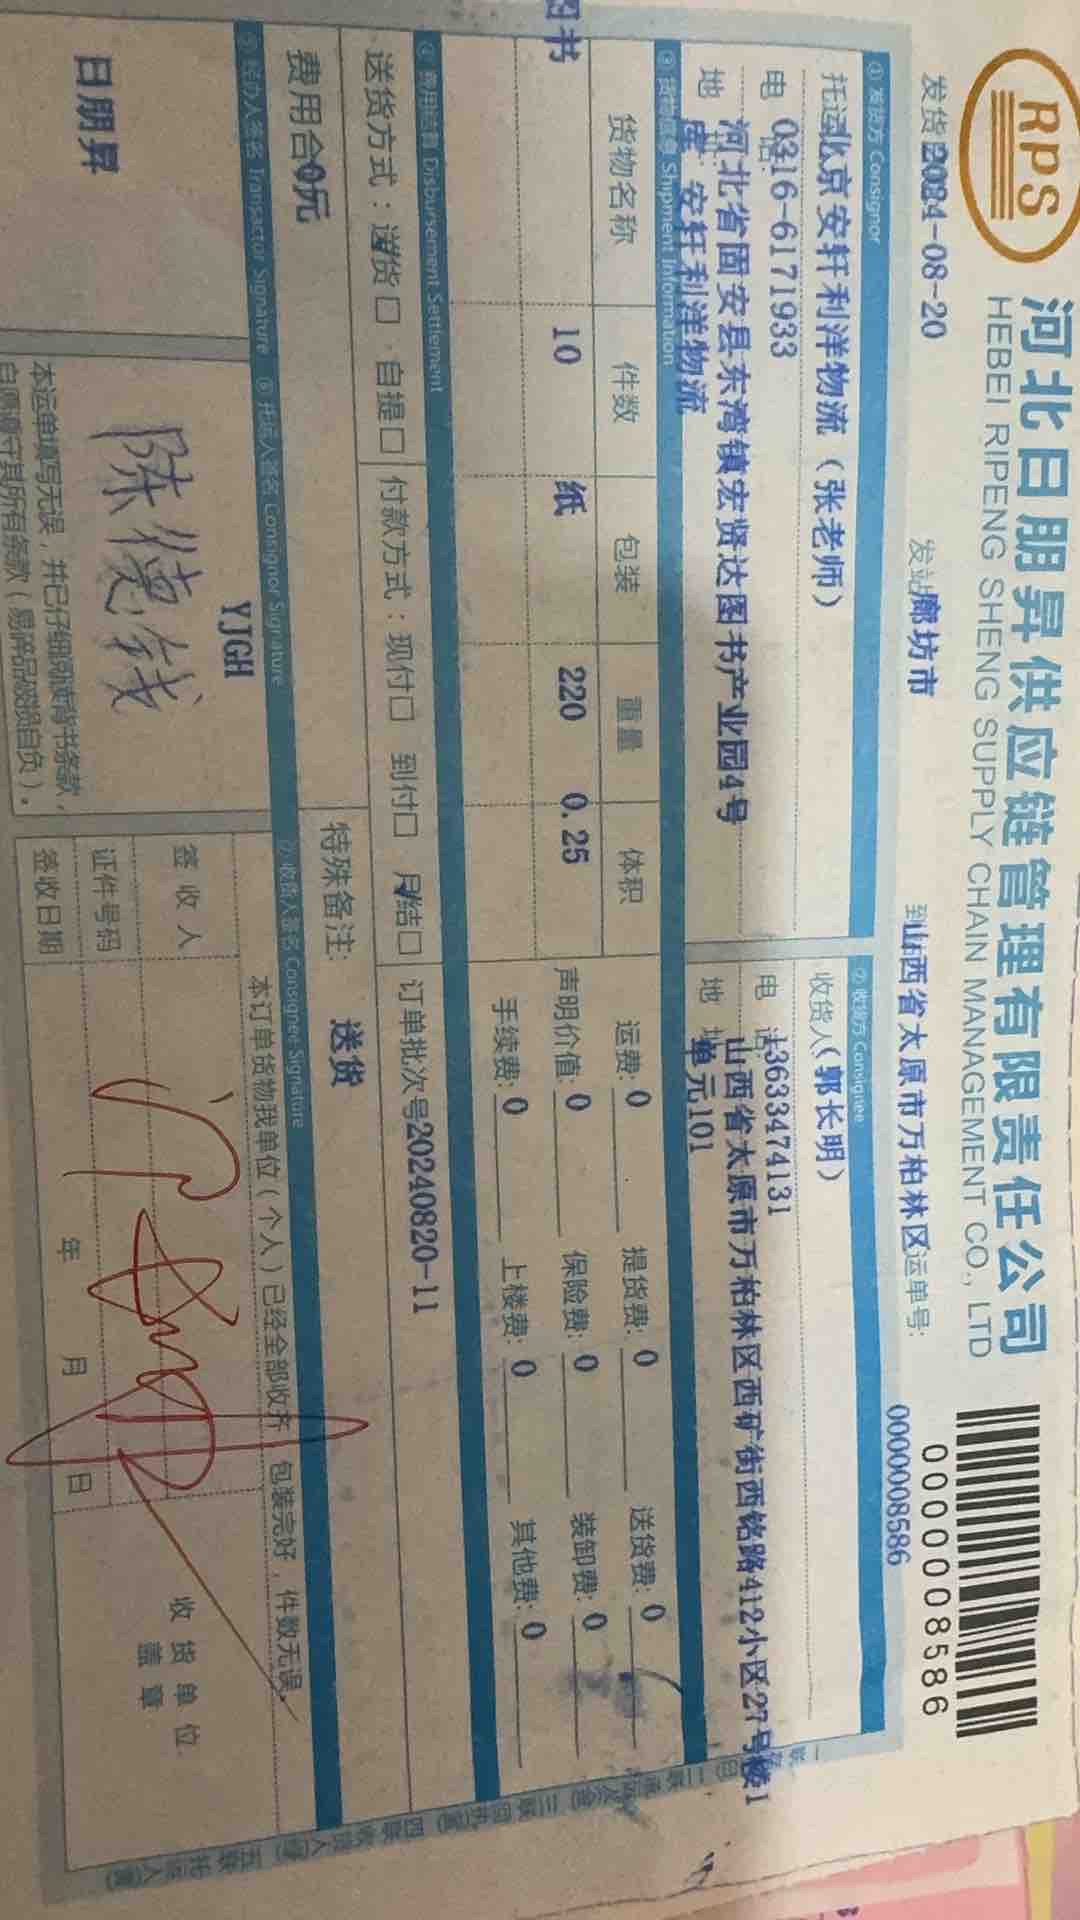 RPS
河北日朋昇供应链管理有限责任公司
HEBEI RIPENG SHENG SUPPLY CHAIN MANAGEMENT CO., LTD
0000008586
发货 2024-08-20
发站 廊坊市
到 山西省太原市万柏林区
运单号: 0000008586
① 发货方 Consignor
托运 北京安轩利洋物流（张老师）
电话: 0316-6171933
地 河北省固安县东湾镇宏贤达图书产业园4号
库 安轩利洋物流
② 收货方 Consignee
收货人（郭长明）
电话 13633474131
地址 山西省太原市万柏林区西矿街西铭路412小区27号楼1
单元101
③ 货物信息 Shipment Information
货物名称 件数 包装 重量 体积
图书 10 纸 220 0.25
运费: 0 提货费: 0 送货费: 0
声明价值: 0 保险费: 0 装卸费: 0
手续费: 0 上楼费: 0 其他费: 0
④ 费用结算 Disbursement Settlement
送货方式：送货☐ 自提☐
付款方式：现付☐ 到付☐ 月结☐
订单批次号 20240820-11
费用合 0元
特殊备注: 送货
⑤ 经办人签名 Transactor Signature
⑥ 托运人签名 Consignor Signature
⑦ 收货人签名 Consignee Signature
日朋昇
YJGH
本运单填写无误，并已仔细阅读背书条款，
本订单货物我单位（个人）已经全部收齐，包装完好，件数无误。
签收人
证件号码
签收日期 年 月 日
收货单位
盖章